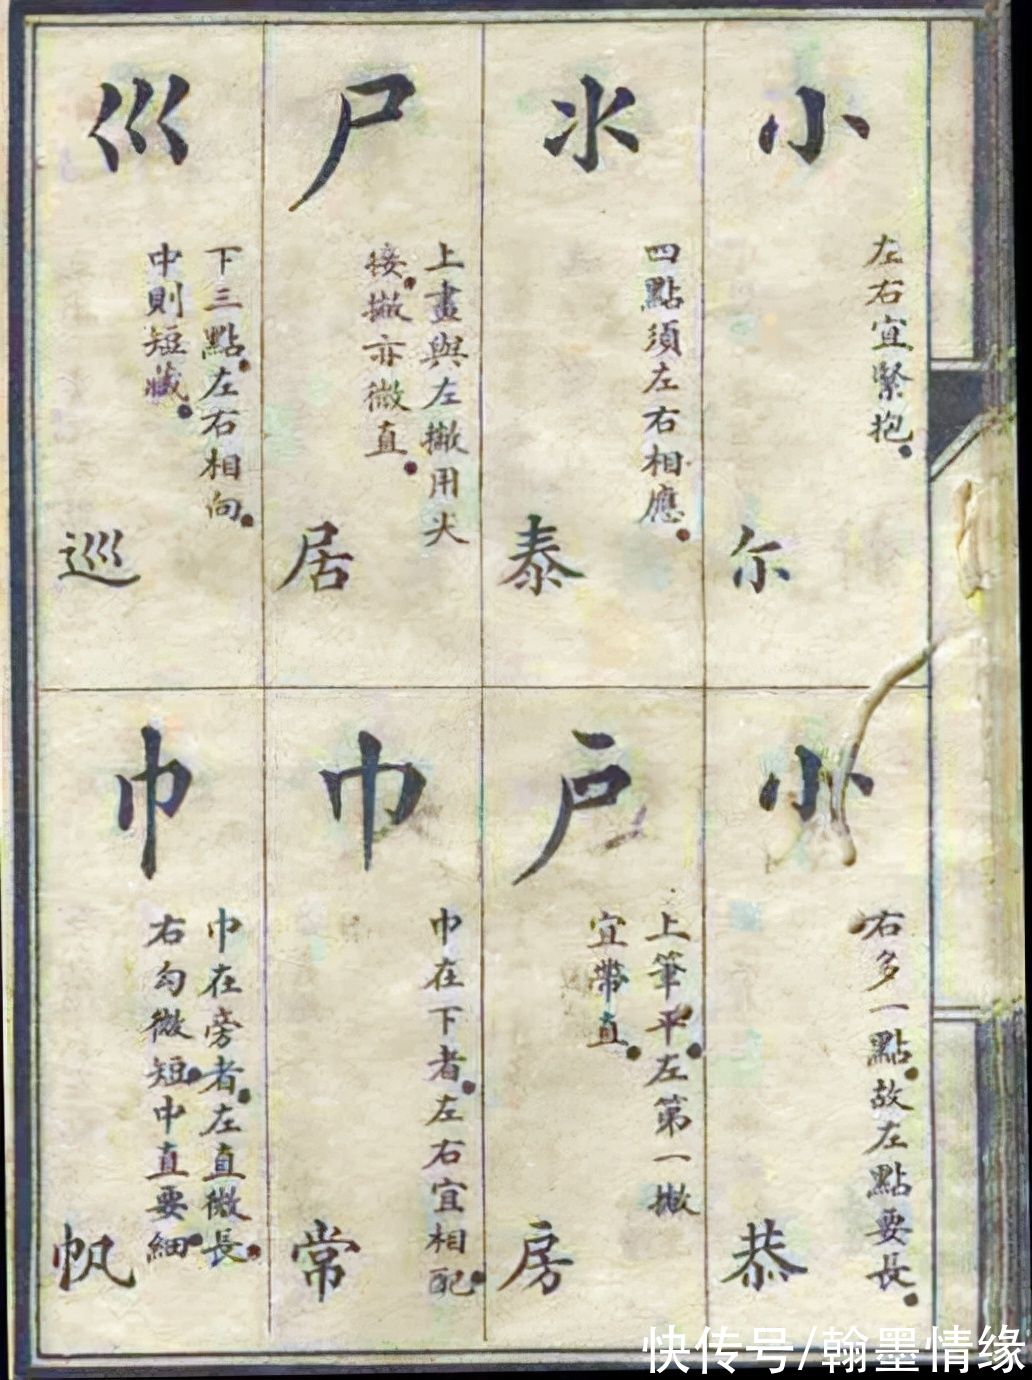 小
左右宜緊抱
尔
氺
四點須左右相應
泰
尸
上畫與左撇用尖
接撇亦微直
居
巛
下三點左右相向
中則短藏
巡
㣺
右多一點故左點要長
恭
戶
上筆平左第一撇
宜帶直
房
巾
巾在下者左右宜相配
常
巾
巾在旁者左直微長
右勾微短中直要細
帆
快传号/翰墨情缘